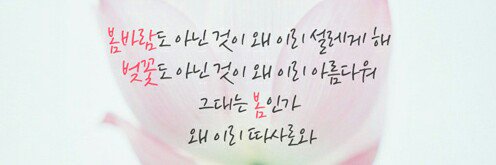 봄바람도 아닌 것이 왜 이리 설레게 해
벚꽃도 아닌 것이 왜 이리 아름다워
그대는 봄인가
왜 이리 따사로와